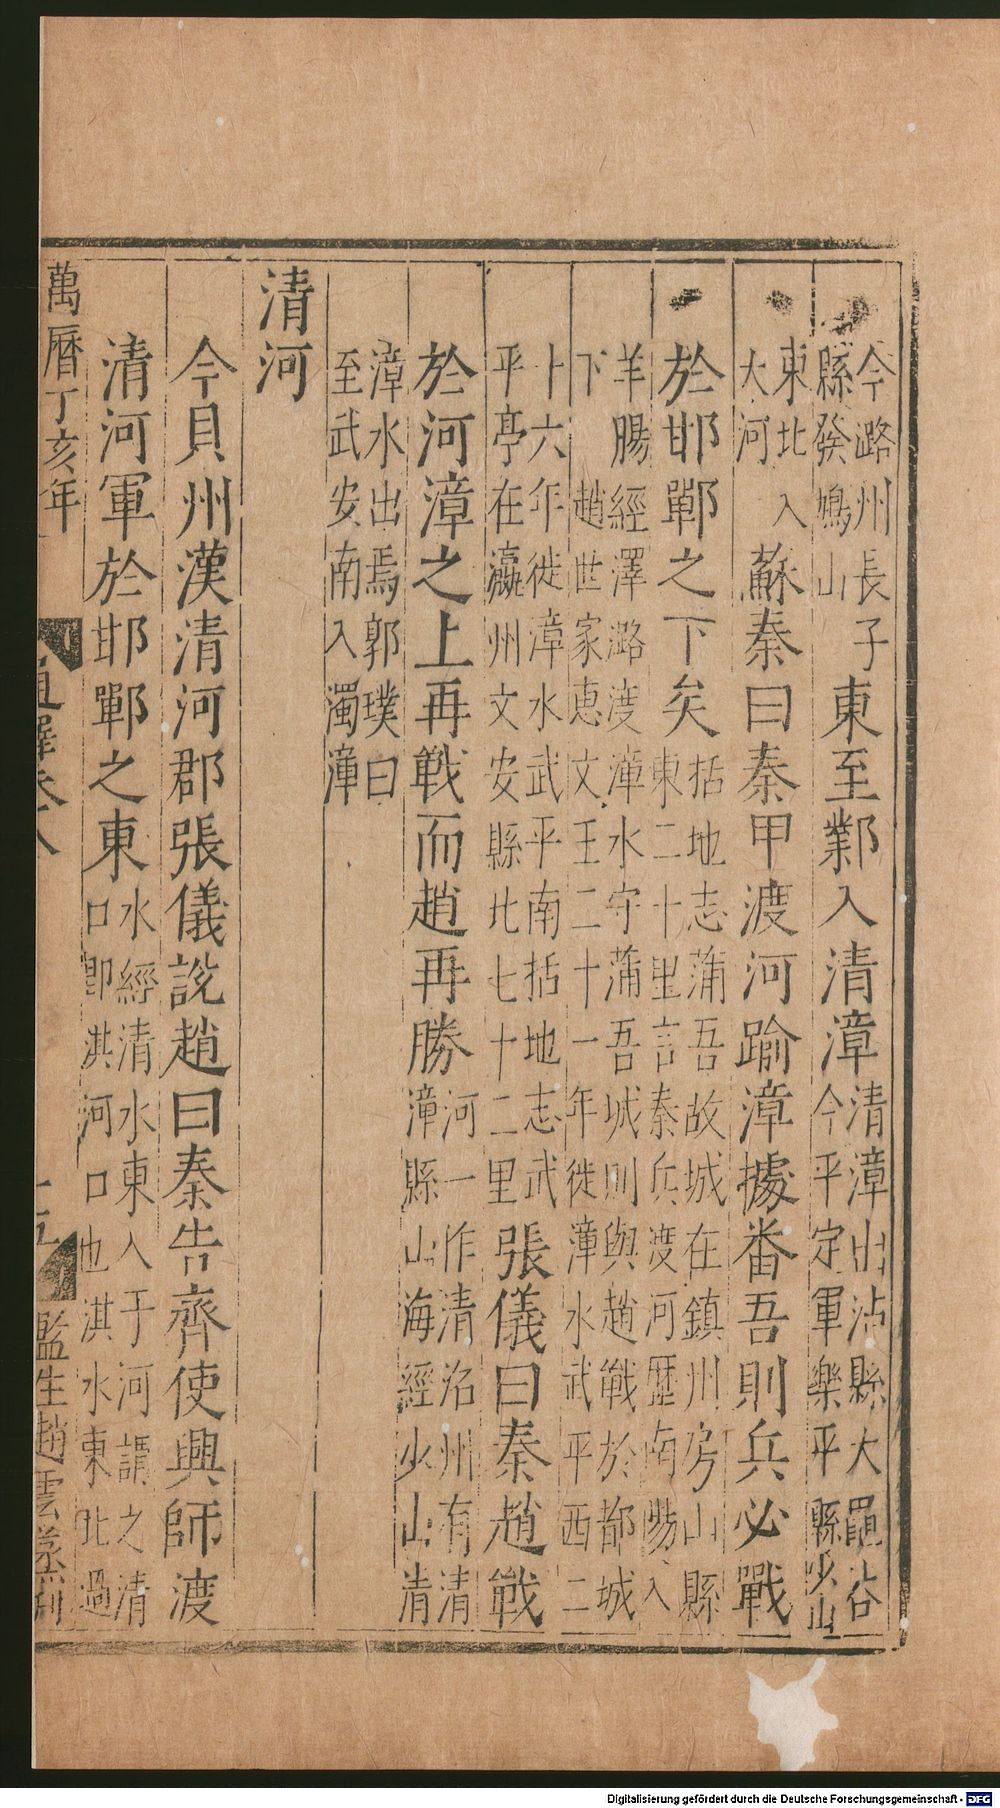 今潞州長子
縣發鳩山
東至鄴入清漳
清漳出沾縣大黽谷
今平定軍樂平縣少山
東北入
大河
蘇秦曰秦甲渡河踰漳據番吾則兵必戰
於邯鄲之下矣
括地志蒲吾故城在鎮州房山縣
東二十里言秦兵渡河歷南陽入
羊腸經澤潞渡漳水守蒲吾城則與趙戰於都城
下 趙世家惠文王二十一年徙漳水武平西二
十六年徙漳水武平南括地志武
平亭在瀛州文安縣北七十二里
張儀曰秦趙戰
於河漳之上再戰而趙再勝
河一作清洺州有清
漳縣山海經少山清
漳水出焉郭璞曰
至武安南入濁漳
清河
今貝州漢清河郡張儀說趙曰秦告齊使興師渡
清河軍於邯鄲之東
水經清水東入于河謂之清
口即淇河口也淇水東北過
萬曆丁亥年
通釋卷八
十五
監生趙雲
刊
Digitalisierung gefördert durch die Deutsche Forschungsgemeinschaft - DFG